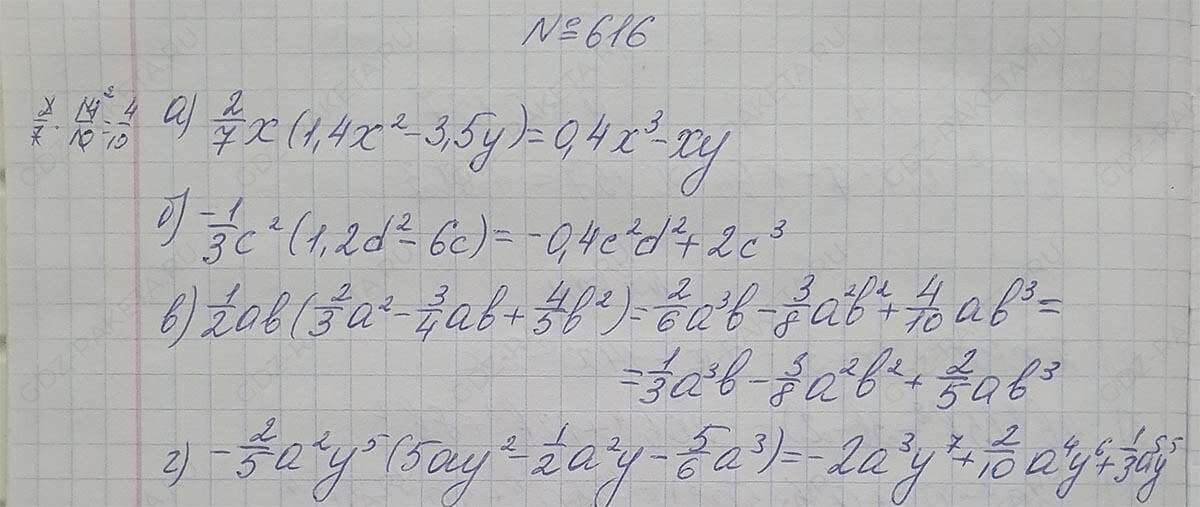 № 616
2/7 · 14²/10 = 4/10
а) 2/7 x (1,4x² - 3,5y) = 0,4x³ - xy
б) -1/3 c² (1,2d² - 6c) = -0,4c²d² + 2c³
в) 1/2 ab (2/3 a² - 3/4 ab + 4/5 b²) = 2/6 a³b - 3/8 a²b² + 4/10 ab³ =
= 1/3 a³b - 3/8 a²b² + 2/5 ab³
г) - 2/5 a²y⁵ (5ay² - 1/2 a²y - 5/6 a³) = -2a³y⁷ + 2/10 a⁴y⁶ + 1/3 a⁵y⁵
GDZ-RAKETA.RU